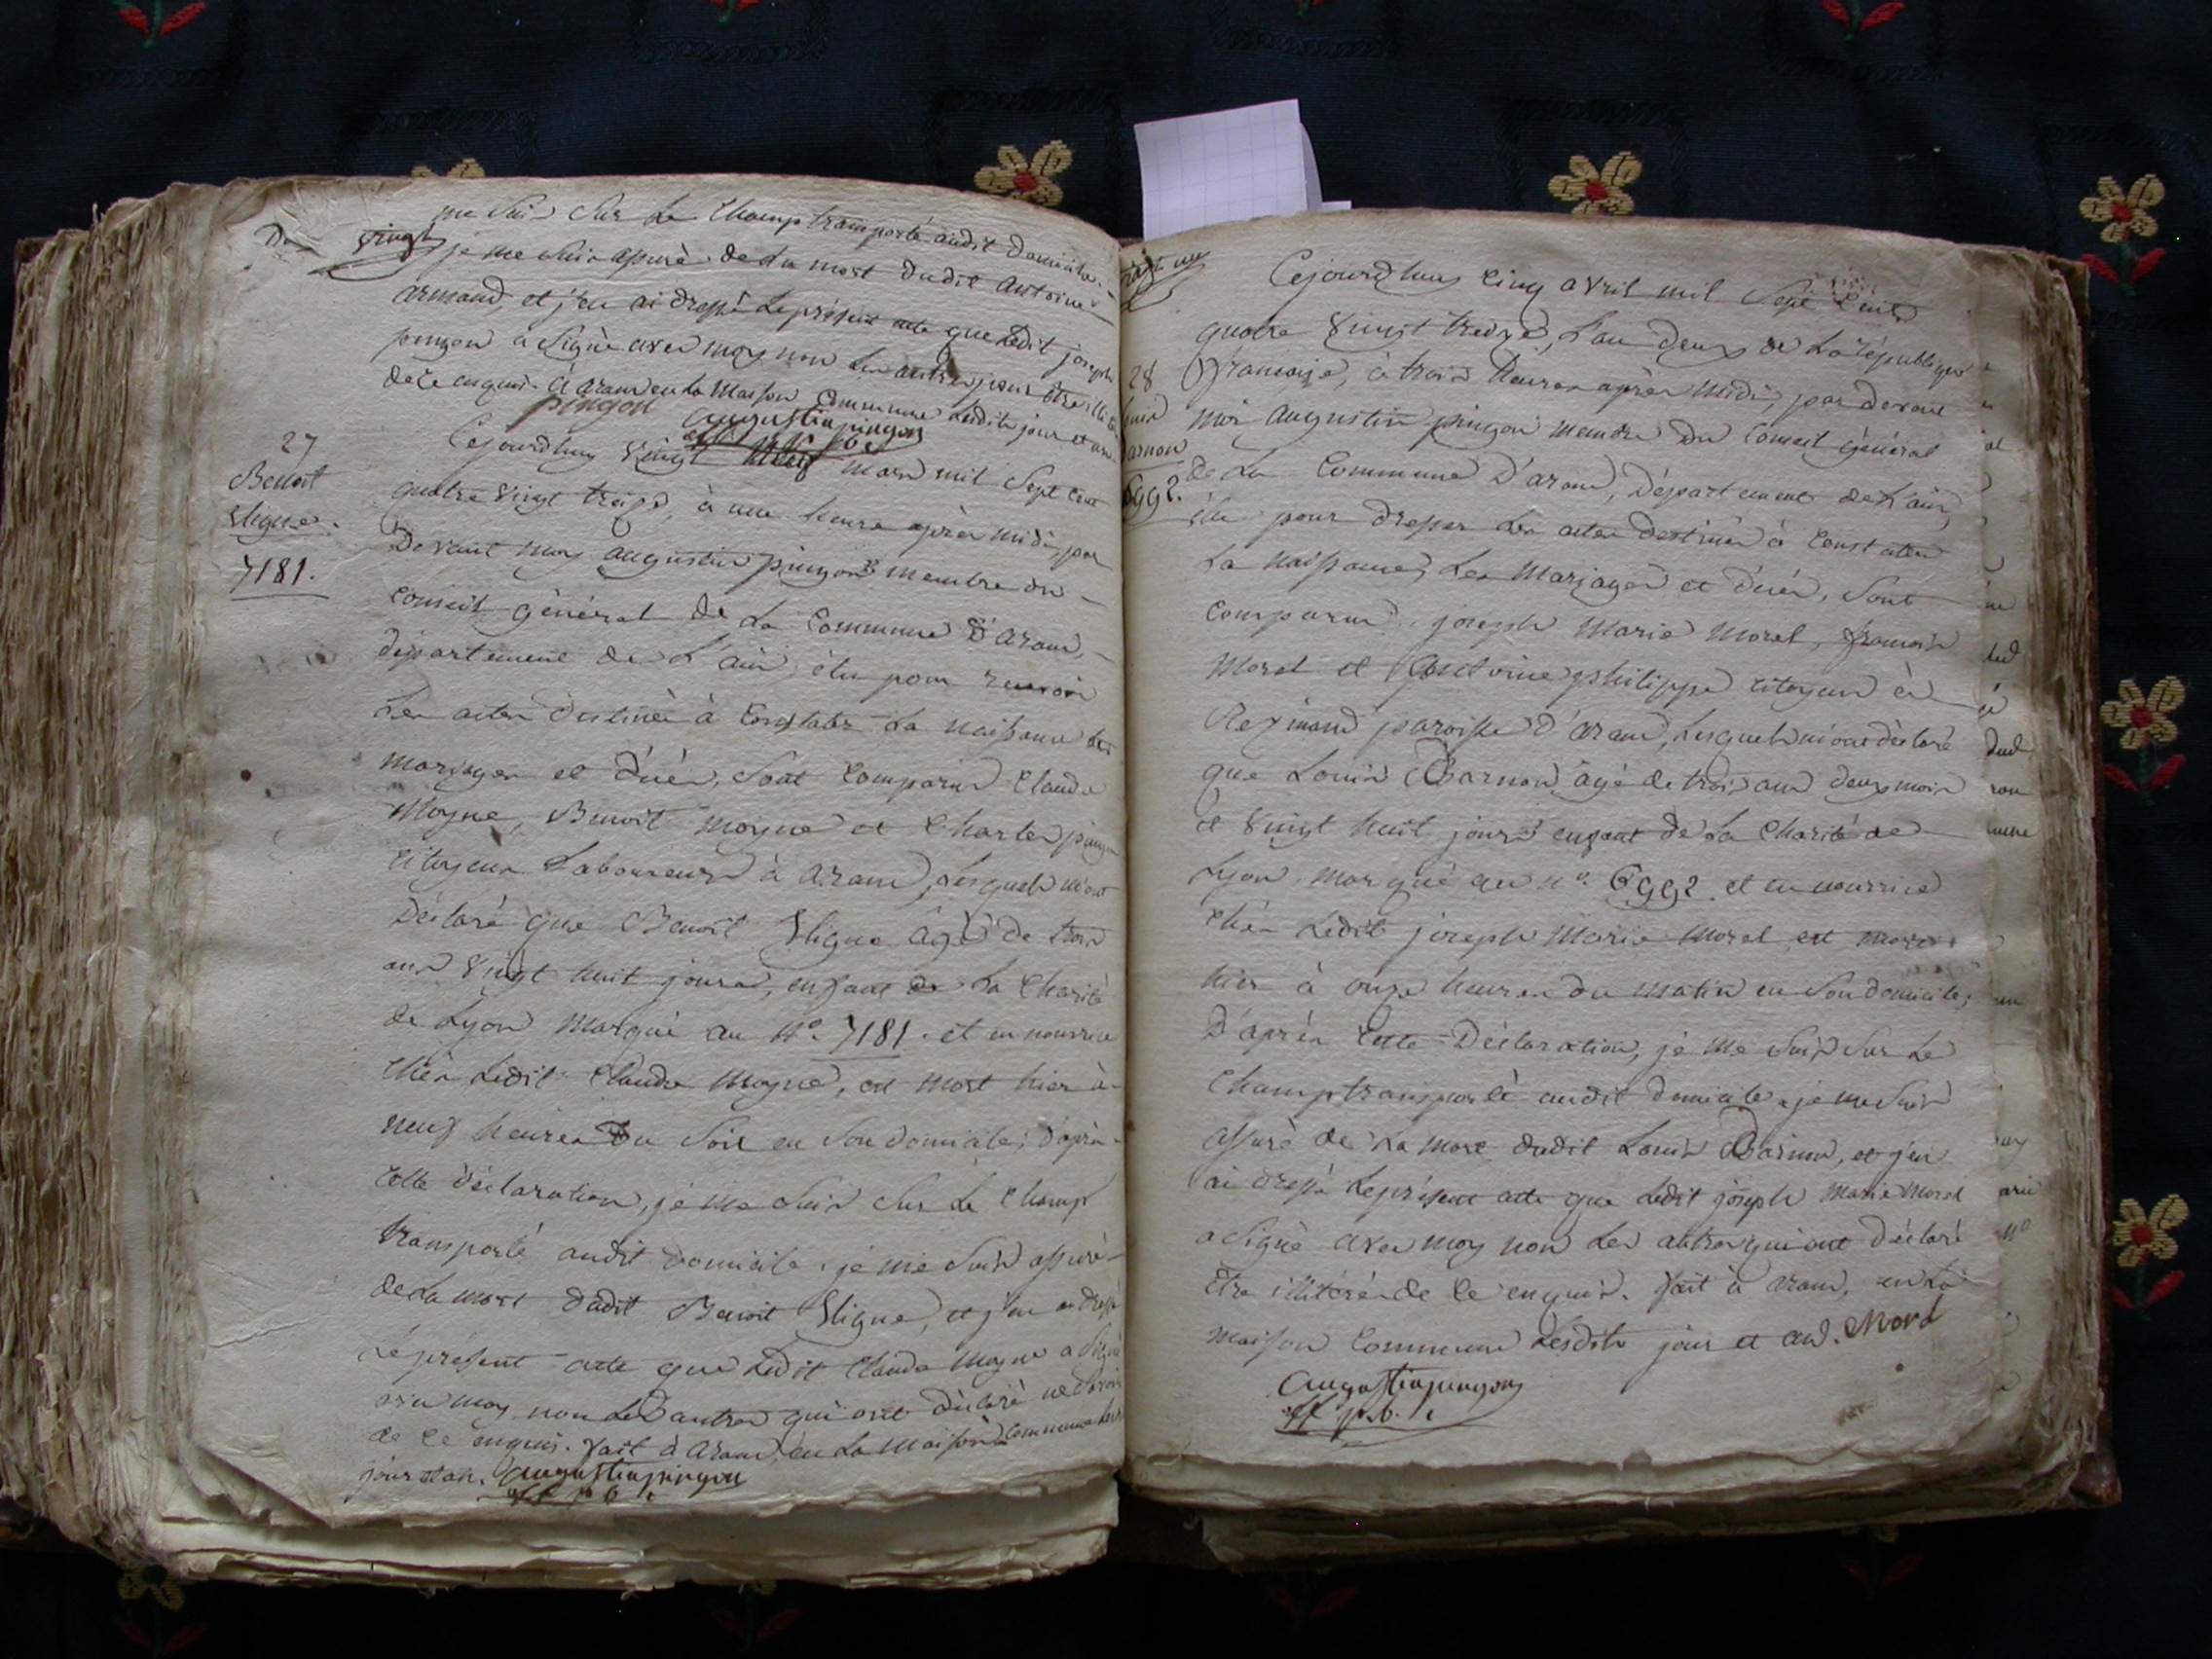 vingt
me Suis Sur Le Champ transporté audit Domicile
je me suis assuré de La mort dudit Antoine
armand, et j'en ai dressé Le présent acte que Ledit joseph
pingon a Signé avec moy non Les autres pour être
de ce enquis. à arane en La Maison Commune Lesdits jour et an.
pingon augustin pingon
27
Benoit
7181.
Cejourdhuy vingt mars mil Sept Cent
quatre vingt treize, à une heure après midi, par
Devant moy augustin pingon membre du
Conseil général de La Commune D'arane,
département de L'ain, élu pour recevoir
Les actes destinés à Constater La naissance Les
mariages et décès, Sont Comparus Claude
Moyne, Benoit moyne et Charles pingon
Citoyens Laboureurs à arane, Lesquels m'ont
Déclaré que Benoit âgé de trois
ans vingt huit jours, enfant de La Charité
de Lyon Marqué au N°. 7181. et en nourrice
Chés Ledit Claude Moyne, est mort hier à
neuf heures Du Soir en Son domicile; d'après
Cette déclaration, je me Suis Sur Le Champ
transporté audit domicile, je me Suis assuré
de La mort dudit Benoit et j'en ai dressé
Le présent acte que Ledit Claude Moyne a Signé
avec moy non Les autres qui ont déclaré ne Savoir
de ce enquis. fait à Arane, en La Maison Commune Lesdits
jour et an. augustin pingon
28
6992.
Cejourdhuy Cinq avril mil Sept Cent
quatre vingt treize, L'an deux de La république
française, à trois heures après midi, par devant
moi augustin pingon membre du Conseil général
de La Commune D'arane, Département de L'ain,
élu pour dresser Les actes destinés à Constater
La naissance, Les Mariages et décès, Sont
Comparus joseph Marie Morel, françois
Morel et Antoine philippe Citoyens à
paroisse D'arane, Lesquels m'ont déclaré
que Louis Barnon âgé de trois ans deux mois
et vingt huit jours enfant de La Charité de
Lyon, marqué au N°. 6992. et en nourrice
Chés Ledit joseph Marie Morel est mort
hier à onze heures du matin en Son domicile;
D'après Cette Déclaration, je me Suis Sur Le
Champ transporté audit domicile, je me Suis
assuré de La mort dudit Louis Barnon, et j'en
ai dressé Le présent acte que Ledit joseph Marie Morel
a Signé avec moy non Les autres qui ont déclaré
être illitérés de Ce enquis. fait à Arane, en La
maison Commune Lesdits jour et an. Morel
augustin pingon